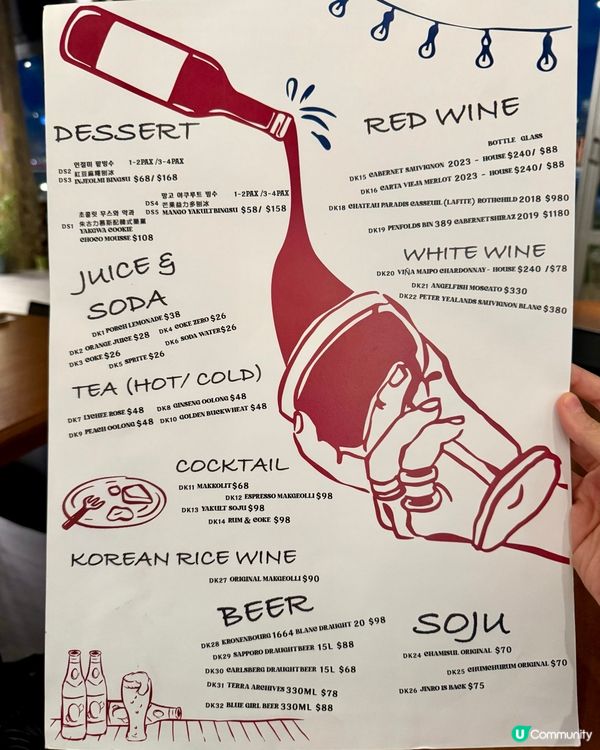 DESSERT
인절미 팥빙수 1-2PAX /3-4PAX
DS2 紅豆麻糬刨冰
DS3 INJEOLMI BINGSU $68/ $168
망고 야쿠르트 빙수 1-2PAX /3-4PAX
DS4 芒果益力多刨冰
DS5 MANGO YAKULT BINGSU $58/ $158
초콜릿 무스와 약과
DS1 朱古力慕斯配韓式藥菓
YAKGWA COOKIE
CHOCO MOUSSE $108
JUICE &
SODA
DK1 PORCH LEMONADE $38
DK2 ORANGE JUICE $28 DK4 COKE ZERO $26
DK3 COKE $26 DK6 SODA WATER $26
DK5 SPRITE $26
TEA (HOT/ COLD)
DK7 LYCHEE ROSE $48 DK8 GINSENG OOLONG $48
DK9 PEACH OOLONG $48 DK10 GOLDEN BUCKWHEAT $48
COCKTAIL
DK11 MAKKOLIT $68
DK12 ESPRESSO MAKGEOLLI $98
DK13 YAKULT SOJU $98
DK14 RUM & COKE $98
KOREAN RICE WINE
DK27 ORIGINAL MAKGEOLLI $90
BEER
DK28 KRONENBOURG 1664 BLANC DRAUGHT 20 $98
DK29 SAPPORO DRAUGHT BEER 15L $88
DK30 CARLSBERG DRAUGHT BEER 15L $68
DK31 TERRA ARCHIVES 330ML $78
DK32 BLUE GIRL BEER 330ML $88
RED WINE
BOTTLE GLASS
DK15 CABERNET SAUVIGNON 2023 - HOUSE $240/ $88
DK16 CARTA VIEJA MERLOT 2023 - HOUSE $240/ $88
DK18 CHATEAU PARADIS CASSEUIL (LAFITE) ROTHCHILD 2018 $980
DK19 PENFOLDS BIN 389 CABERNET SHIRAZ 2019 $1180
WHITE WINE
DK20 VIÑA MAIPO CHARDONNAY - HOUSE $240 /$78
DK21 ANGELFISH MOSCATO $330
DK22 PETER YEALANDS SAUVIGNON BLANC $380
SOJU
DK24 CHAMISUL ORIGINAL $70
DK25 CHUMCHURUM ORIGINAL $70
DK26 JINRO IS BACK $75
U Community